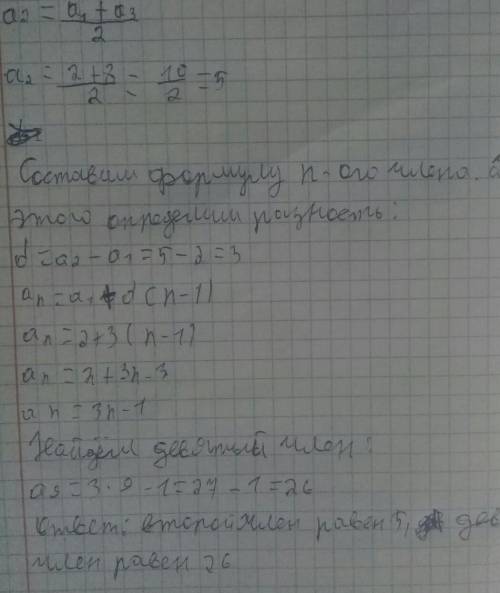 a₂ = (a₁ + a₃)/2
a₂ = (2+8)/2 = 10/2 = 5
Составим формулу n-ого члена.
этого определим разность:
d = a₂ - a₁ = 5 - 2 = 3
aₙ = a₁ + d (n-1)
aₙ = 2+3 (n-1)
aₙ = 2+3n-3
aₙ = 3n-1
Найдём девятый член:
a₉ = 3·9-1=27-1=26
Ответ: второй член равен 5, дев
член равен 26